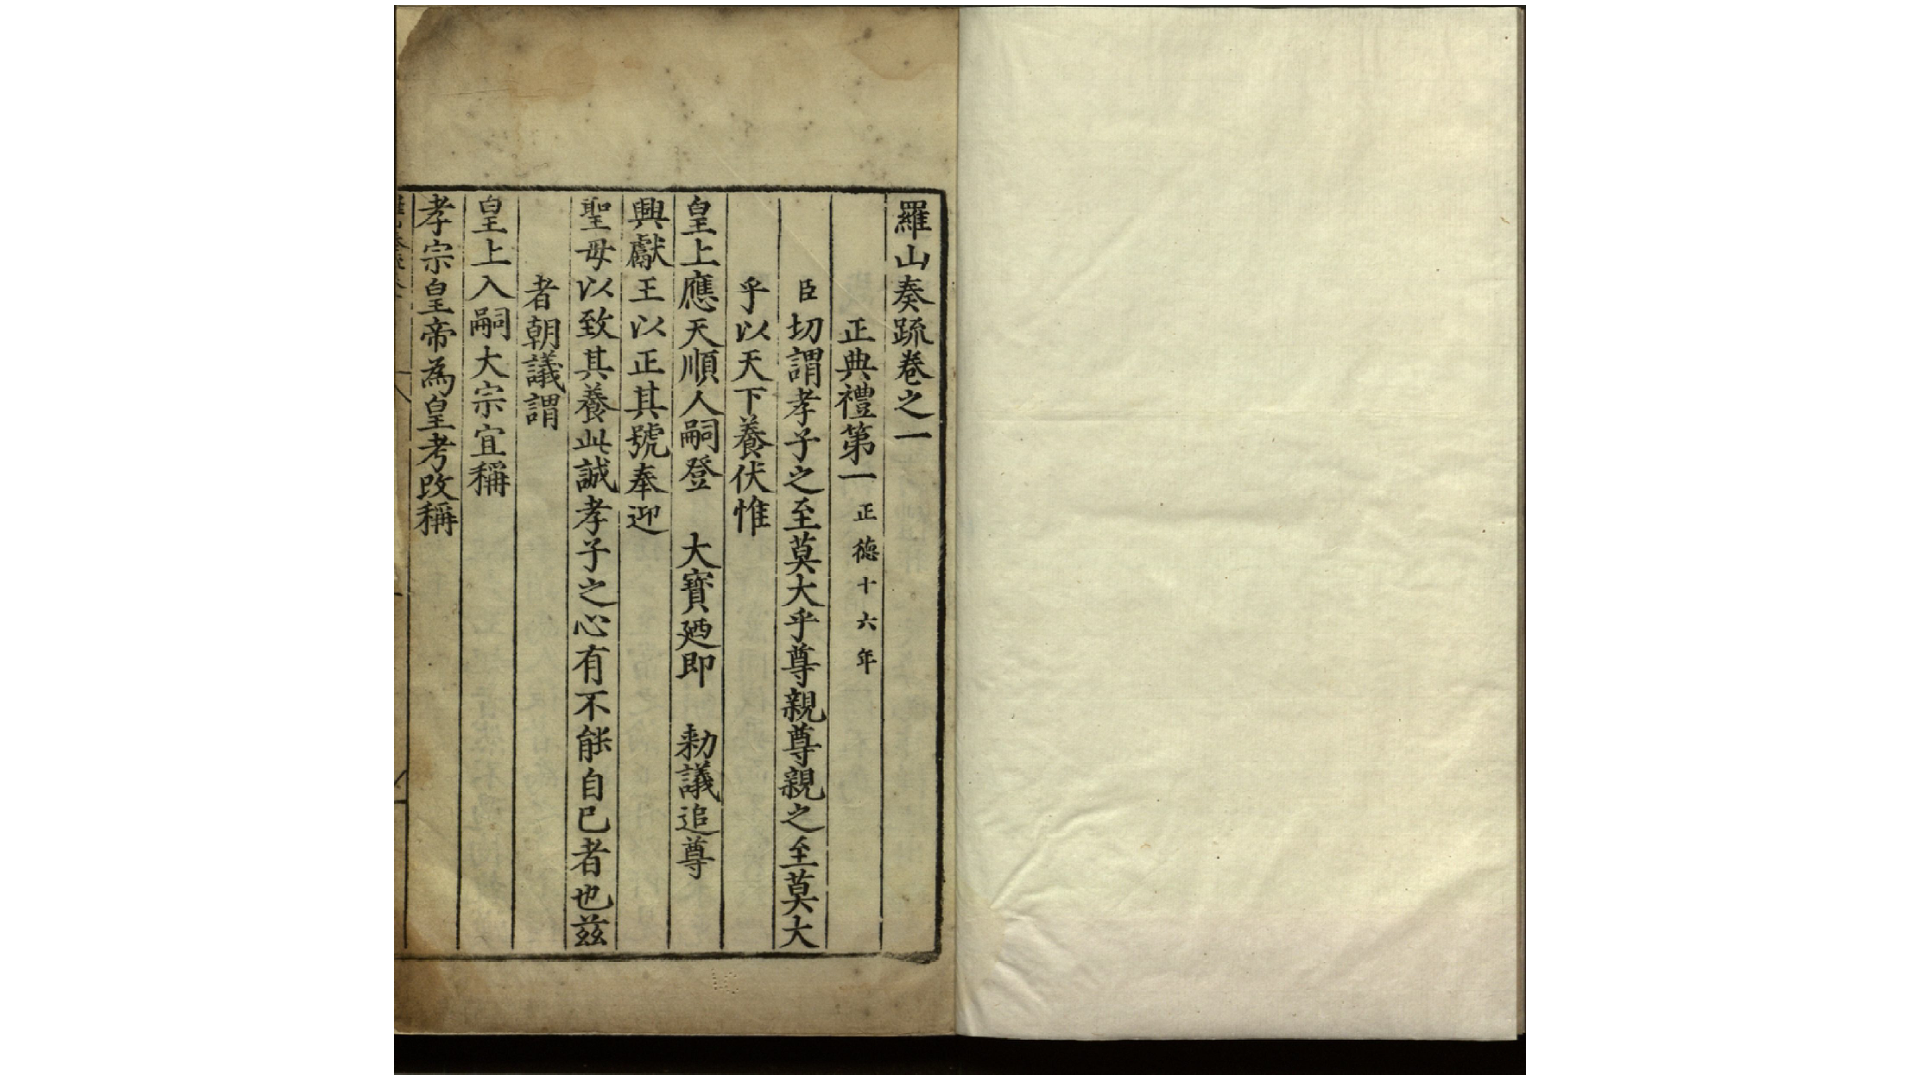 羅山奏疏卷之一
正典禮第一 正德十六年
臣切謂孝子之至莫大乎尊親尊親之至莫大
乎以天下養伏惟
皇上應天順人嗣登 大寶廼即 勑議追尊
興獻王以正其號奉迎
聖母以致其養此誠孝子之心有不能自已者也兹
者朝議謂
皇上入嗣大宗宜稱
孝宗皇帝為皇考改稱